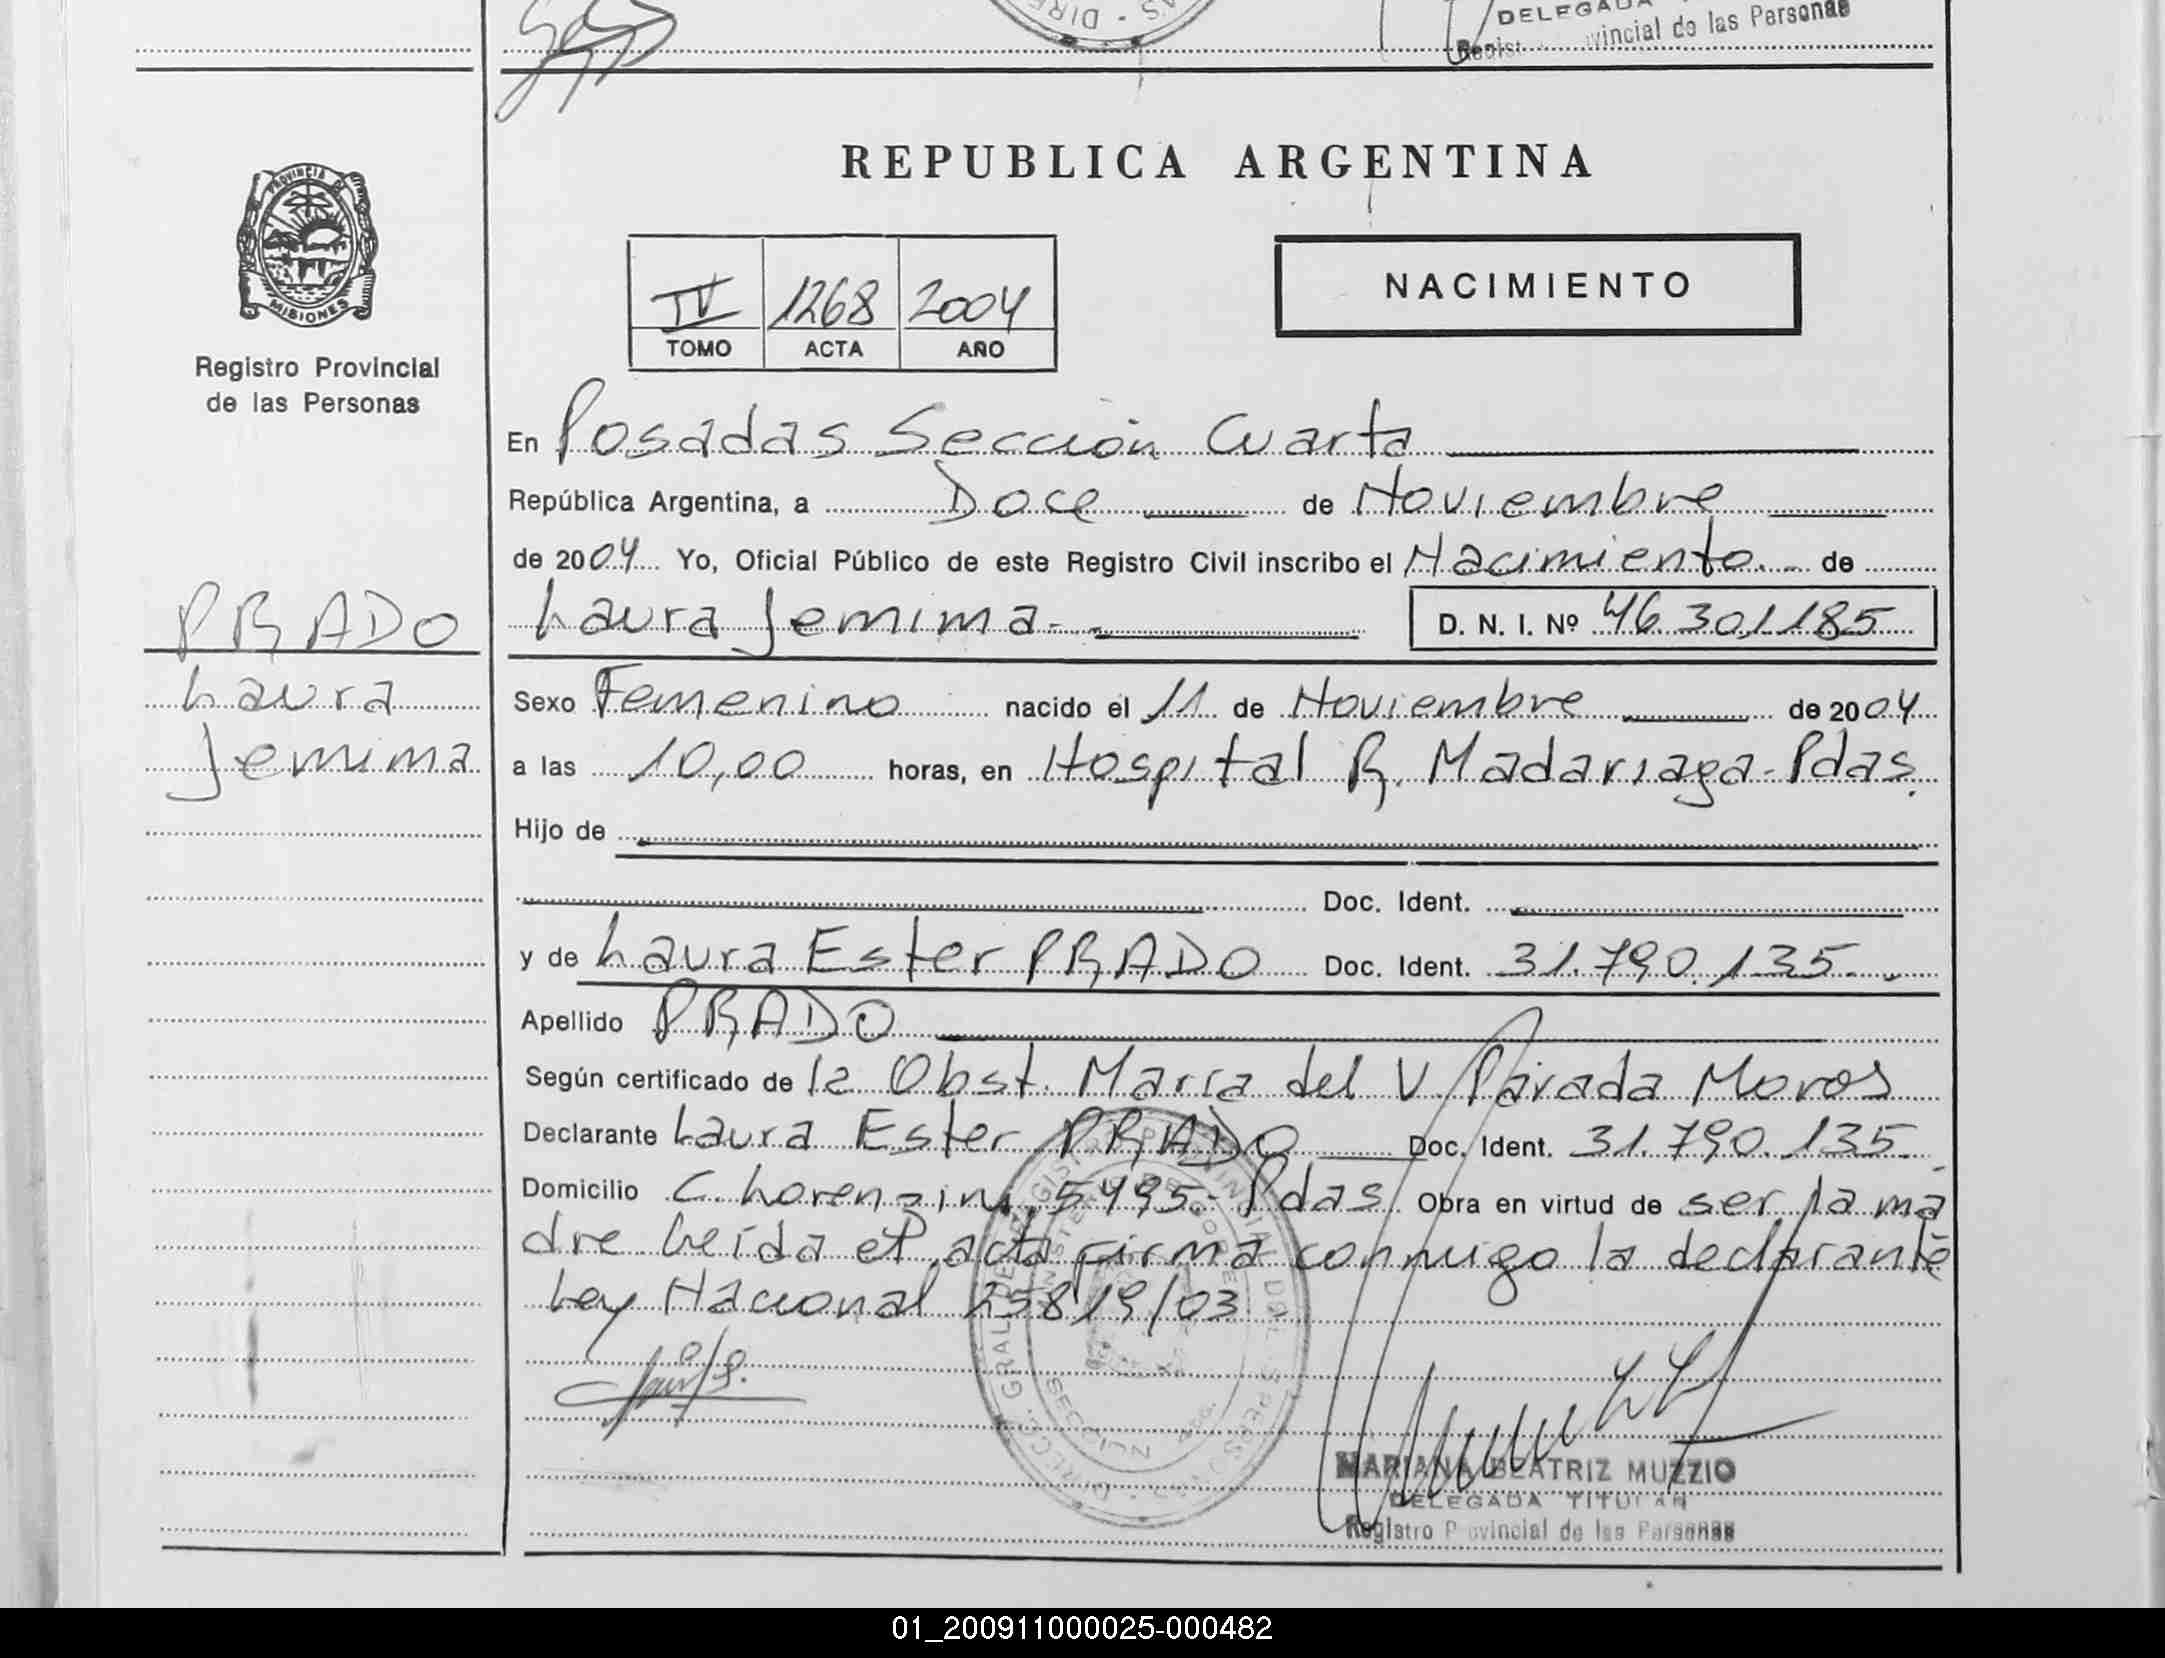 DELEGADA
Regist vincial de las Personas
REPUBLICA ARGENTINA
PROVINCIA DE
MISIONES
Registro Provincial
de las Personas
IV 1268 2004
TOMO ACTA AÑO
NACIMIENTO
En Posadas Sección Cuarta
República Argentina, a Doce de Noviembre
de 2004 Yo, Oficial Público de este Registro Civil inscribo el Nacimiento. de
Laura Jemima D. N. I. Nº 46.301.185
PRADO
Laura
Jemima
Sexo Femenino nacido el 11 de Noviembre de 2004
a las 10,00 horas, en Hospital R. Madariaga-Pdas.
Hijo de
Doc. Ident.
y de Laura Ester PRADO Doc. Ident. 31.790.135
Apellido PRADO
Según certificado de la Obst. María del V. Parada Moros
Declarante Laura Ester PRADO Doc. Ident. 31.790.135
Domicilio C. Lorenzini 5495- Pdas Obra en virtud de ser la ma
dre leída el acta firma conmigo la declarante
Ley Nacional 25819/03
MARIANA BEATRIZ MUZZIO
DELEGADA TITULAR
Registro Provincial de las Personas
01_200911000025-000482